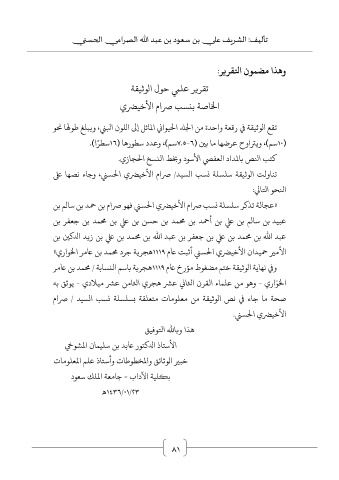 تأليف: الشريف علي بن سعود بن عبد الله الصرامي الحسني
وهذا مضمون التقرير:
تقرير علمي حول الوثيقة
الخاصة بنسب صرام الأخيضري
تقع الوثيقة في رقعة واحدة من الجلد الحيواني المائل إلى اللون البني، ويبلغ طولها نحو
(١٠سم)، ويتراوح عرضها ما بين (٦-٧.٥سم)، وعدد سطورها (١٦سطرًا).
كتب النص بالمداد العفصي الأسود وبخط النسخ الحجازي.
تناولت الوثيقة سلسلة نسب السيد/ صرام الأخيضري الحسني، وجاء نصها على
النحو التالي:
«عجالة تذكر سلسلة نسب صرام الأخيضري الحسني فهو صرام بن حمد بن سالم بن
عبيد بن سالم بن علي بن أحمد بن محمد بن حسن بن علي بن محمد بن جعفر بن
عبد الله بن محمد بن علي بن جعفر بن عبد الله بن محمد بن علي بن زيد الدكين بن
الأمير حميدان الأخيضري الحسني أثبت عام ١١١٩هجرية جرد محمد بن عامر الحوازي»
وفي نهاية الوثيقة ختم مضغوط مؤرخ عام ١١١٩هجرية باسم النسابة / محمد بن عامر
الحوازي - وهو من علماء القرن الثاني عشر هجري الثامن عشر ميلادي - يوثق به
صحة ما جاء في نص الوثيقة من معلومات متعلقة بسلسلة نسب السيد / صرام
الأخيضري الحسني.
هذا وبالله التوفيق
الأستاذ الدكتور عابد بن سليمان المشوخي
خبير الوثائق والمخطوطات وأستاذ علم المعلومات
بكلية الآداب - جامعة الملك سعود
١٤٣٦/٠١/٢٣هـ
٨١